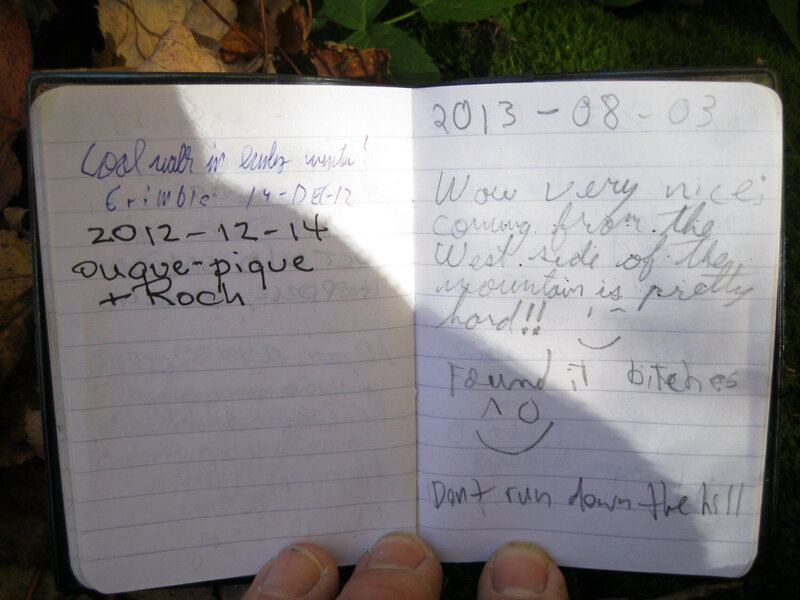 Cool walk in early winter!
Grimbic 14-DEC-12
2012-12-14
ouque-pique
+ Roch
2013-08-03
Wow very nice;
coming from the
West side of the
mountain is pretty
hard!!
Found it bitches
Don't run down the hill